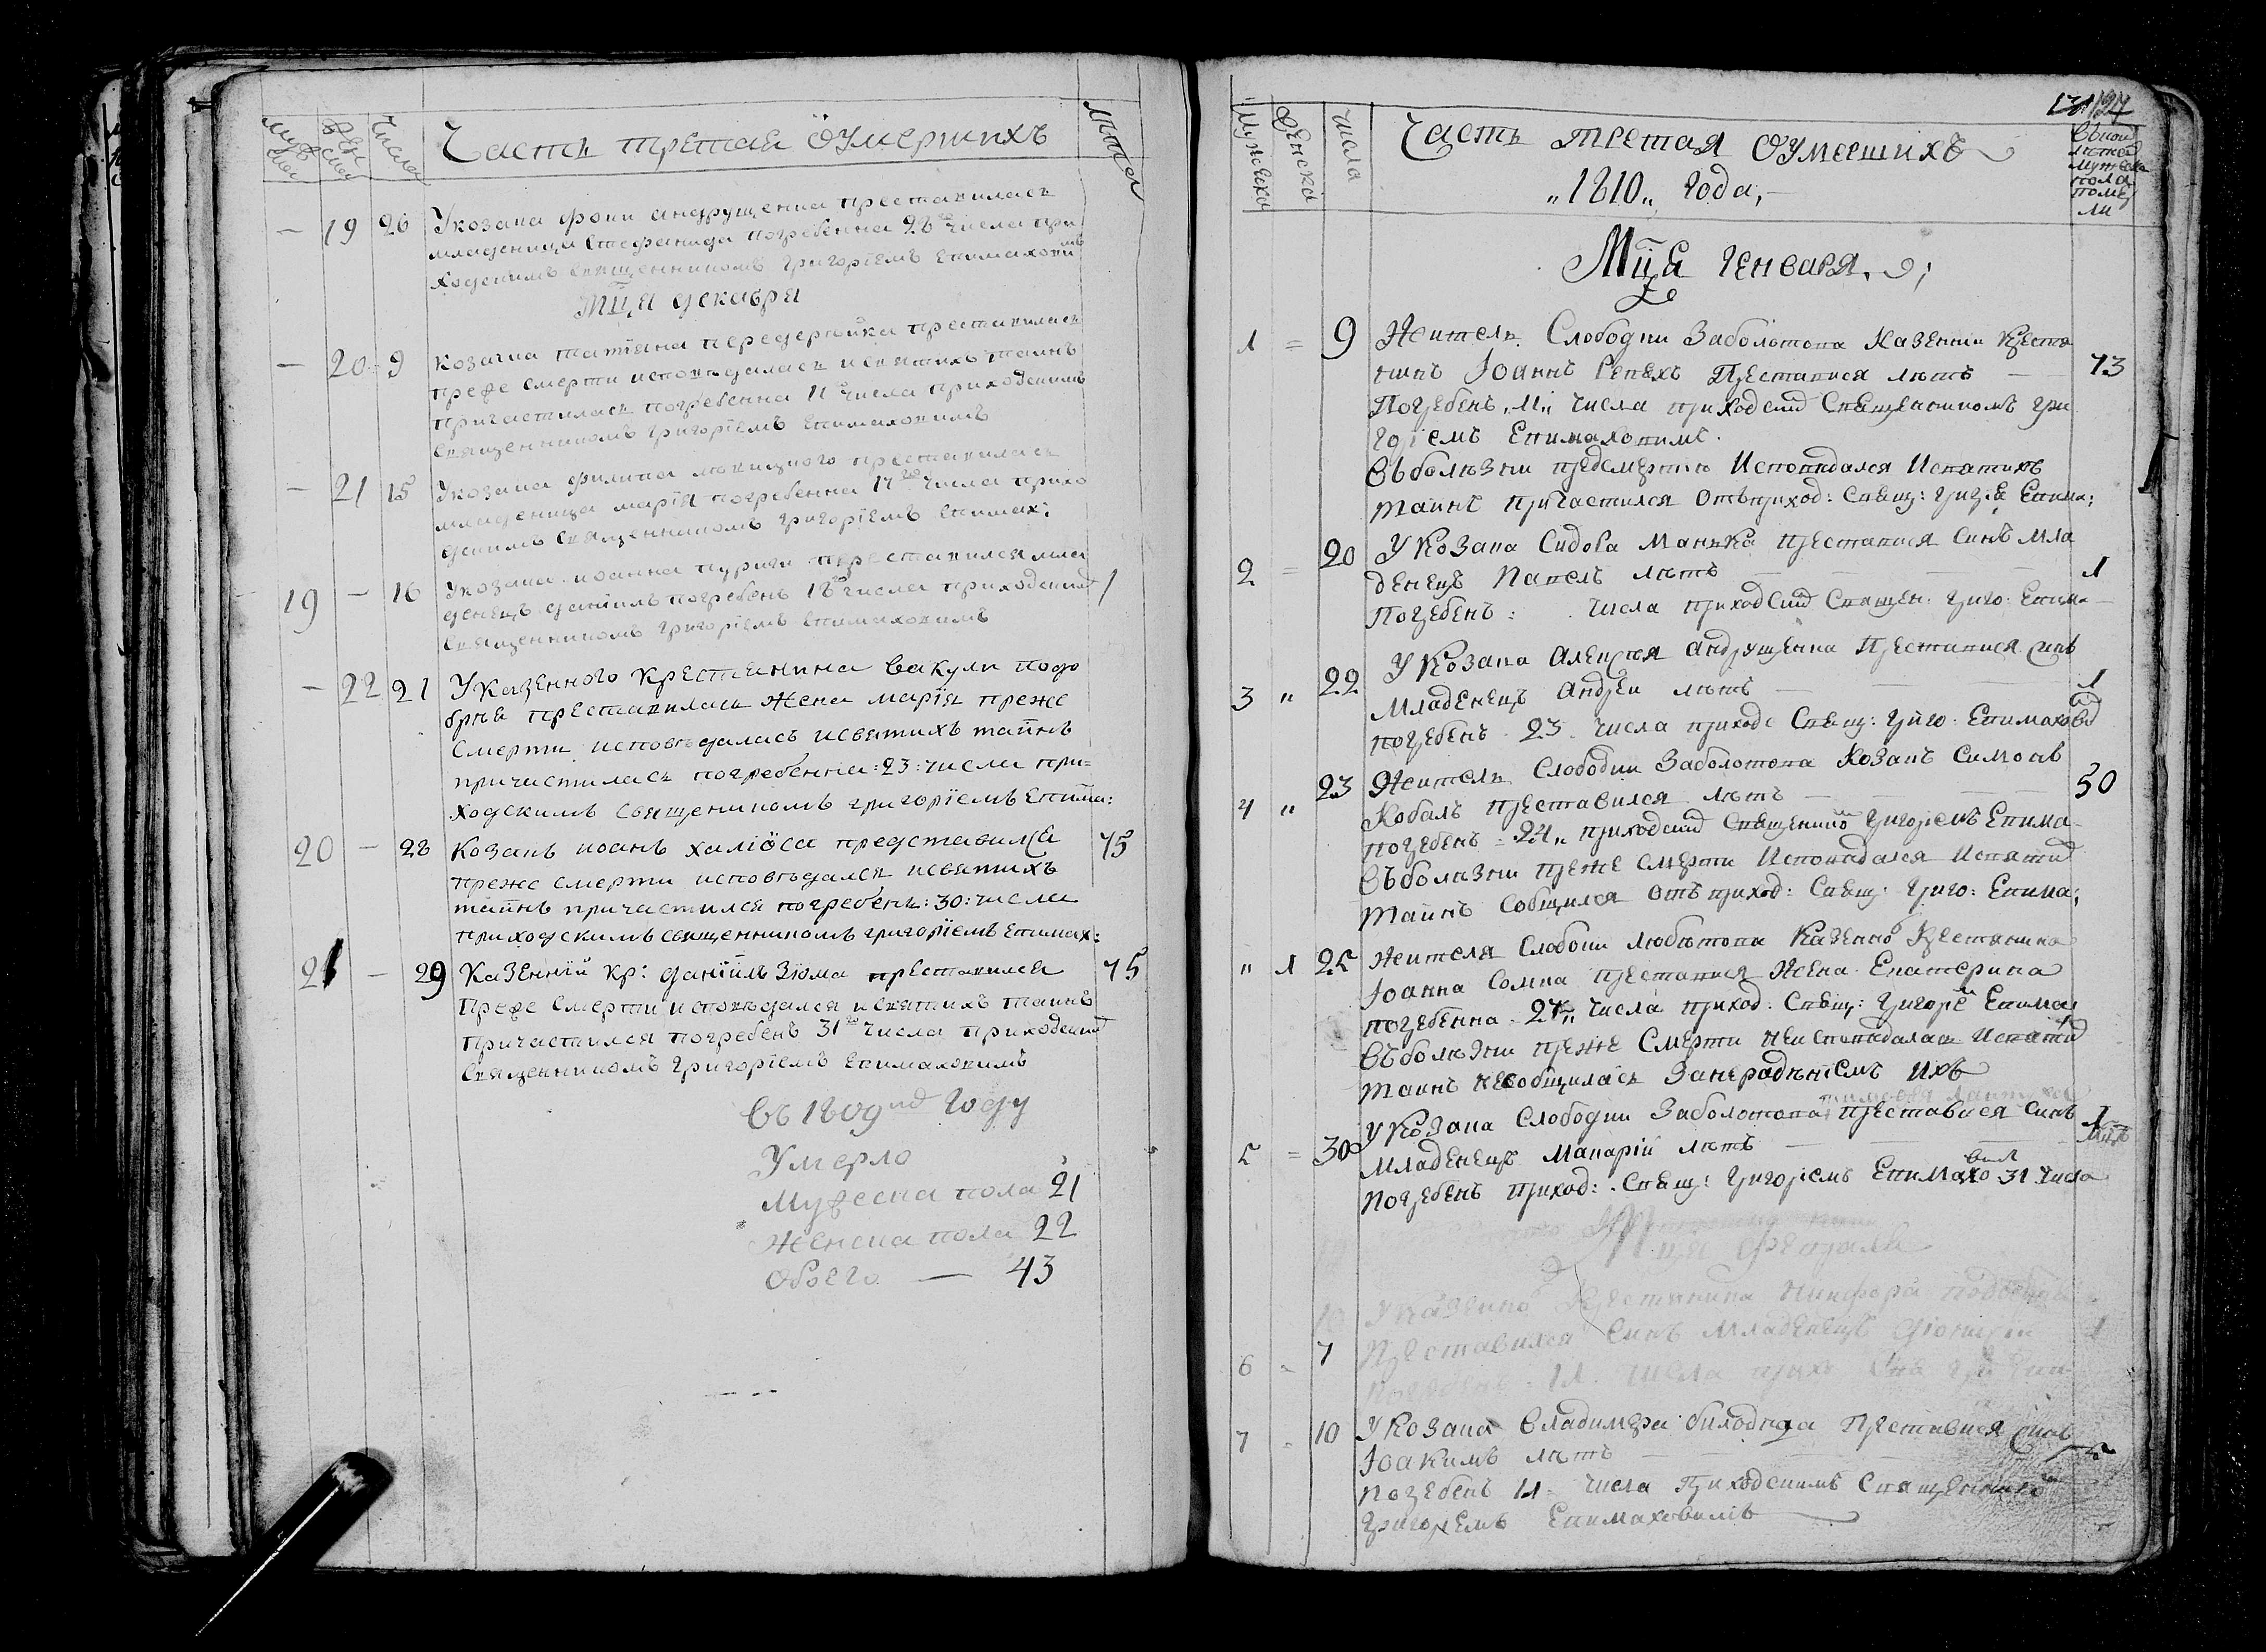 мужска
женска
Числа
Часть третая ѻумершихъ
лѣта
— 19 26 У козака фоки андрущенка преставилась
младеница Стефанида погребенна 28го числа при
ходскимъ Священникомъ Григорїемъ Епимахови
мца декабря
— 20 9 козачка татїяна передерѣйка преставилась
преже смерти исповѣдалась и святихъ таинъ
причастилась погребенна 11 числа приходскимъ
Священникомъ Григорїемъ Епимаховимъ
— 21 15 У козака филипа преставилась
младеница марїя погребенна 17го числа прихо
дскимъ Священникомъ Григорїемъ Епимах:
19 — 16 У козака иоанна пуриги преставился мла
денецъ данїилъ погребенъ 18 числа приходским 1
Священникомъ Григорїемъ Епимаховимъ
— 22 21 У казенного крестянина Вакули подо
брѣя преставилась жена марїя преже
смерти исповѣдалась и святихъ таинъ
причастилась погребенна :23: числа при=
ходскимъ священникомъ григорїемъ Епима:
20 — 28 Козакъ иоанъ халїѻса представился 75
преже смерти исповѣдался и святихъ
таинъ причастился погребенъ :30: числа
приходскимъ священникомъ григорїемъ Епимах:
21 — 29 Казенний кр: данїилъ Зїома преставился 75
Преже Смерти исповѣдался и Святихъ таинъ
причастился погребенъ 31го числа приходским
Священникомъ Григорїемъ Епимаховимъ
Въ 1809мъ Году
Умерло
Мужеска пола 21
Женска пола 22
Обоего — 43
Мужеска
Женска
Числа
Часть третая ѻумершихъ
„1810„ Года,—
134
Мцѧ Генваря.
1 = 9 Житель Слободки Заболотока Казенний Крестя
нинъ Іоаннъ Репехъ Преставися лѣтъ — 73
Погребенъ „11„ числа приходским Священникомъ Гри
горіемъ Епимаховимъ.
Въ болѣзни предсмертію Исповѣдался И святихъ
таинъ причастился отъ приход: Свящ: Григорїя Епима:
2 = 20 У Козака Сидора Манька преставися синъ мла
денецъ Павелъ лѣтъ 1
Погребенъ : числа приходским Священ: Григо: Епима—
3 „ 22 У Козака Алексѣя Андрущенка Преставися синъ
Младенецъ Андрей лѣтъ — — 1
погребенъ 23 числа приходс Свящ: Григо: Епимахов
4 „ 23 Житель Слободки Заболотока Козакъ Симонъ
Ковалъ преставился лѣтъ — 50
погребенъ 24„ приходским Священнико Григоріемъ Епима
Въ болѣзни преже смерти Исповѣдался И святи
Таинъ Собщился отъ приход: Свящ: Григо: Епима;
„ 1 25 Жителя Слободки Казенно Крестянина
Іоанна преставися Жена Екатерина
погребенна 27„ числа приход: Свящ: Григоріе Епима
Въ болѣзни преже Смерти Неисповѣдалась И святи
Таинъ несобщилась Занерадѣніемъ ихъ
5 = 30 У Козака Слободки Заболотока преставися синъ 1
Младенецъ Макарій лѣтъ
Погребенъ приход: Свящ: Григоріемъ Епимахо 31 числа
мця февраля
6 - 7 У казенно Крестянина Никифора
Преставился синъ младенецъ Діонисій 1
погребенъ 11 числа прих
7 - 10 У Козака Владимера преставися синъ
Іоакимъ лѣтъ 5
погребенъ 11 числа Приходскимъ Священнико
Григоріемъ Епимаховимъ